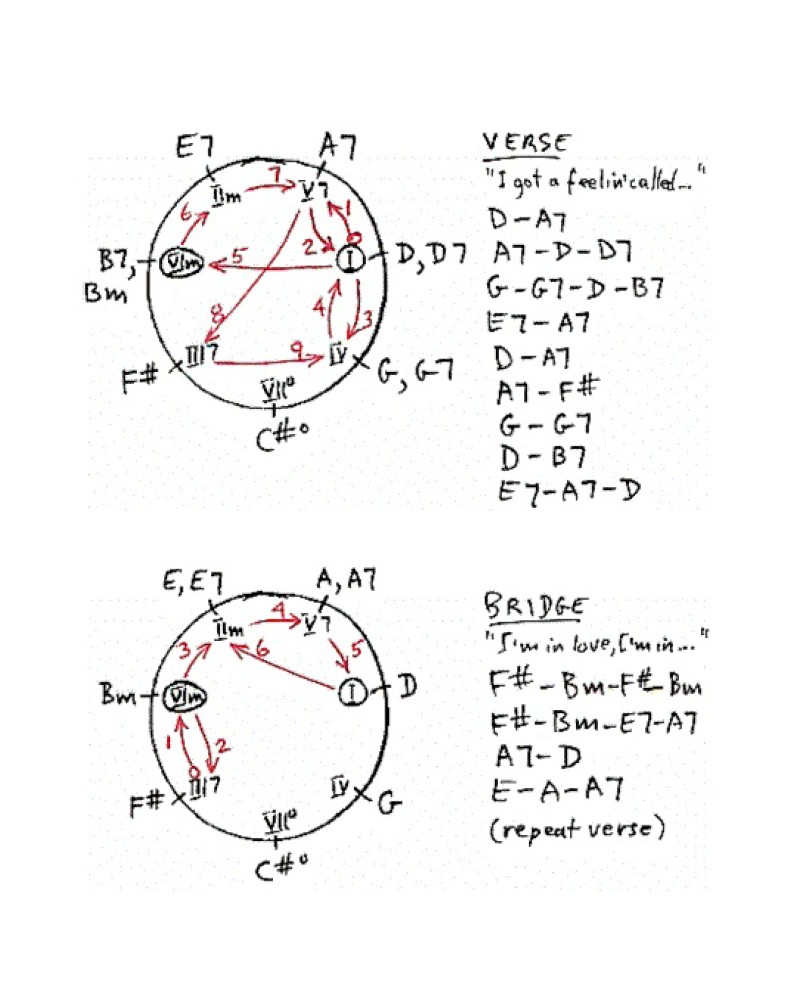 E7 A7
IIm 7 V7
6 1
B7, VIm 5 2 I D, D7
Bm
4 3
8
F# III7 9 IV G, G7
VII°
C#°
VERSE
"I got a feelin' called..."
D-A7
A7-D-D7
G-G7-D-B7
E7-A7
D-A7
A7-F#
G-G7
D-B7
E7-A7-D
E, E7 A, A7
IIm 4 V7
3 6 5
Bm VIm I D
1 2
F# III7 IV G
VII°
C#°
BRIDGE
"I'm in love, I'm in..."
F#-Bm-F#-Bm
F#-Bm-E7-A7
A7-D
E-A-A7
(repeat verse)